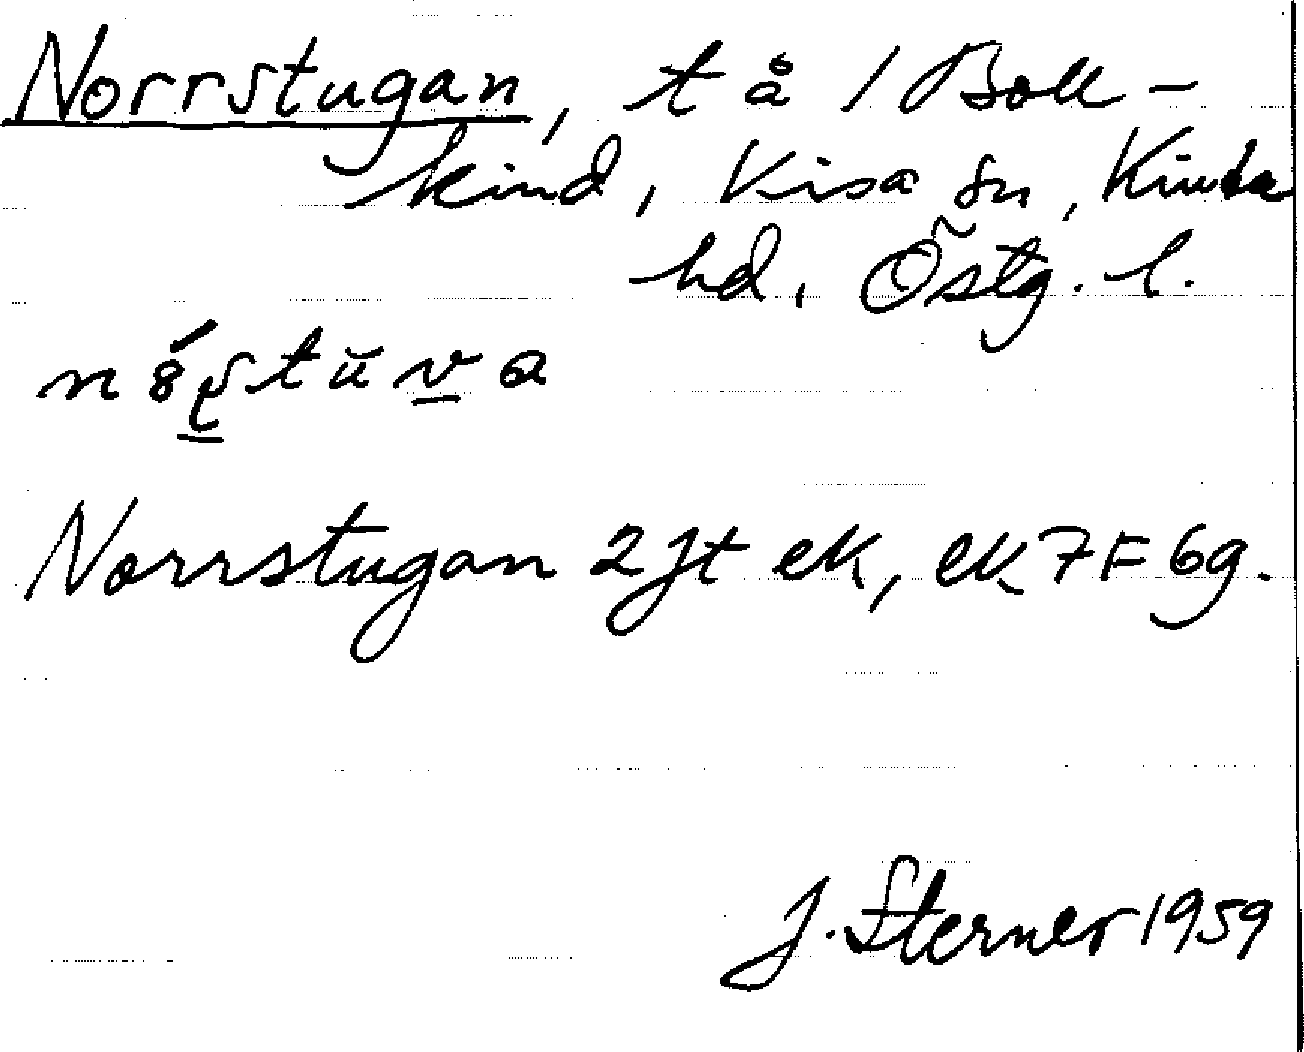 Norrstugan, t å 1 Boll-
kind, Kisa sn, Kinda
hd, Östg. l.
Norrstugan 2 jt ek, ek 7F6g.
J. Sterner 1959